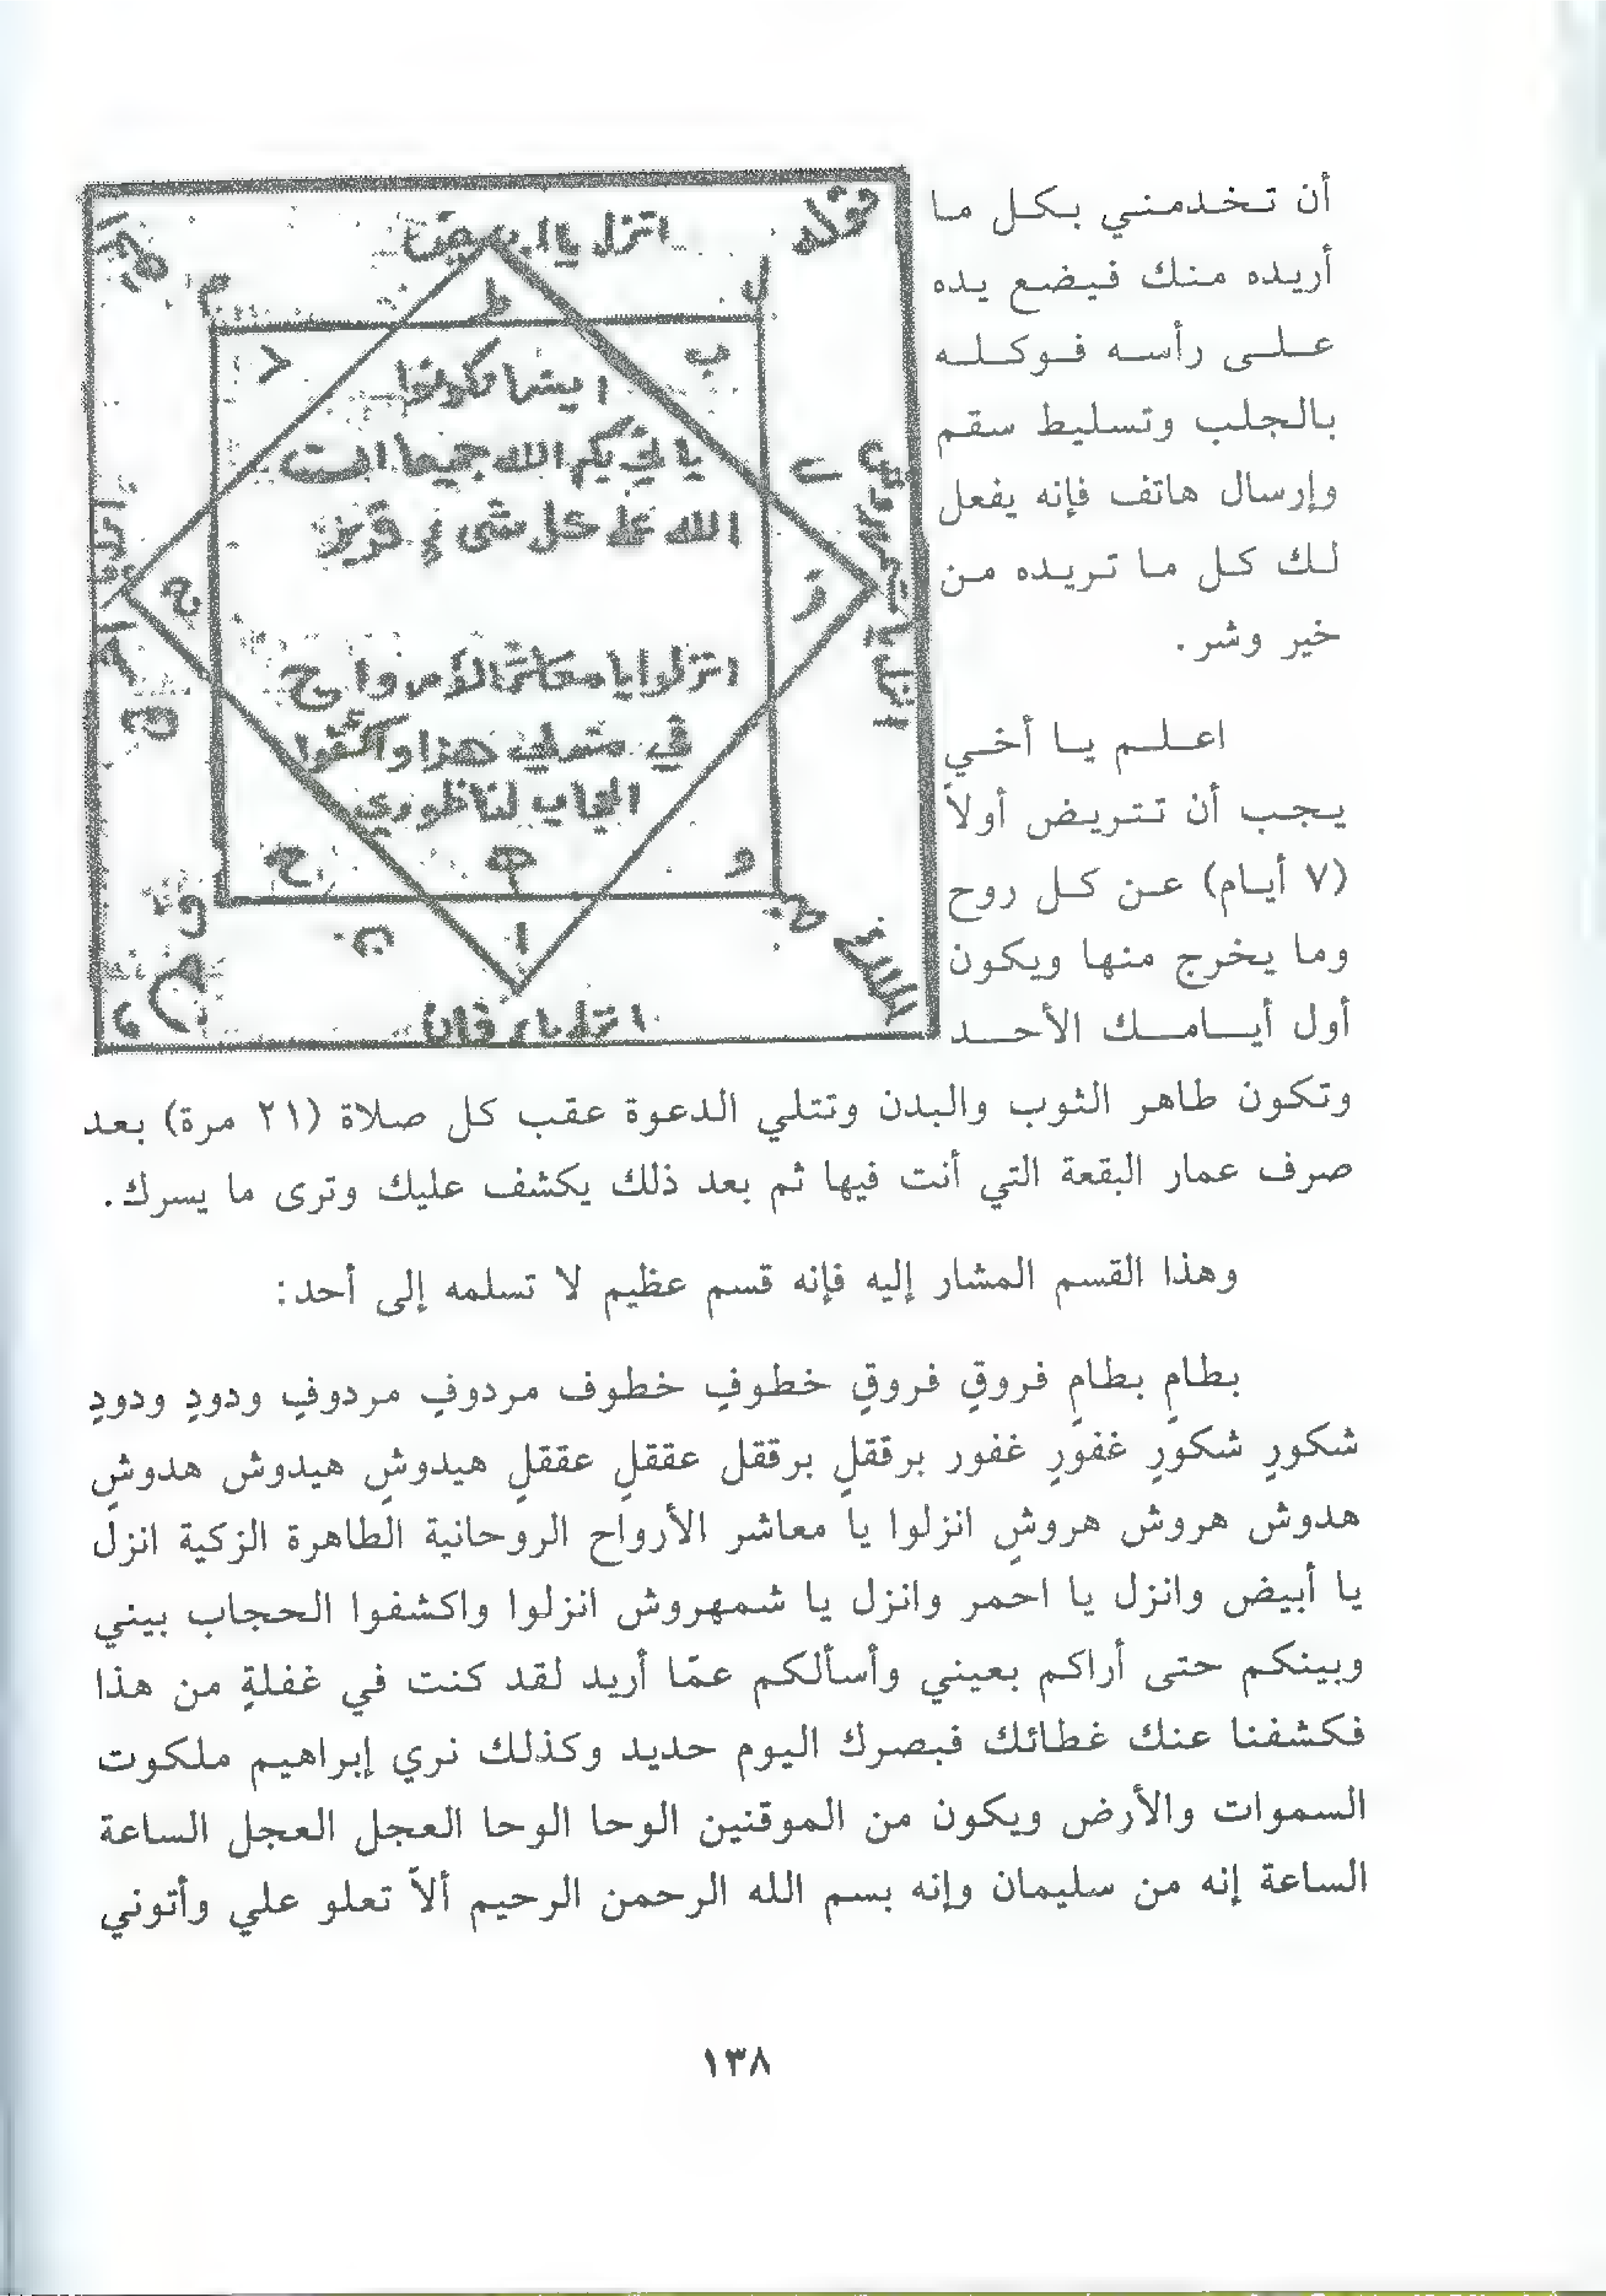 أن تخدمني بكل ما
أريده منك فيضع يده
على رأسه فوكله
بالجلب وتسليط سقم
وإرسال هاتف فإنه يفعل
لك كل ما تريده من
خير وشر.
اعلم يا أخي
يجب أن تتريض أولاً
(٧ أيام) عن كل روح
وما يخرج منها ويكون
أول أيامك الأحد
قوله
ل
م
ط
ب
د
اينما تكونوا
الله جميعا
الله على كل شيء
ز
انزلوا يا
في هذا
و
ح
ن
ا
ق
وتكون طاهر الثوب والبدن وتتلي الدعوة عقب كل صلاة (٢١ مرة) بعد
صرف عمار البقعة التي أنت فيها ثم بعد ذلك يكشف عليك وترى ما يسرك.
وهذا القسم المشار إليه فإنه قسم عظيم لا تسلمه إلى أحد:
بطامٍ بطامٍ فروقٍ فروقٍ خطوفٍ خطوف مردوفٍ مردوفٍ ودودٍ ودودٍ
شكورٍ شكورٍ غفورٍ غفور برققلٍ برققل عققلٍ عققلٍ هيدوشٍ هيدوش هدوشٍ
هدوش هروش هروشٍ انزلوا يا معاشر الأرواح الروحانية الطاهرة الزكية انزل
يا أبيض وانزل يا احمر وانزل يا شمهروش انزلوا واكشفوا الحجاب بيني
وبينكم حتى أراكم بعيني وأسألكم عمّا أريد لقد كنت في غفلةٍ من هذا
فكشفنا عنك غطائك فبصرك اليوم حديد وكذلك نري إبراهيم ملكوت
السموات والأرض ويكون من الموقنين الوحا الوحا العجل العجل الساعة
الساعة إنه من سليمان وإنه بسم الله الرحمن الرحيم ألاّ تعلو علي وأتوني
١٣٨